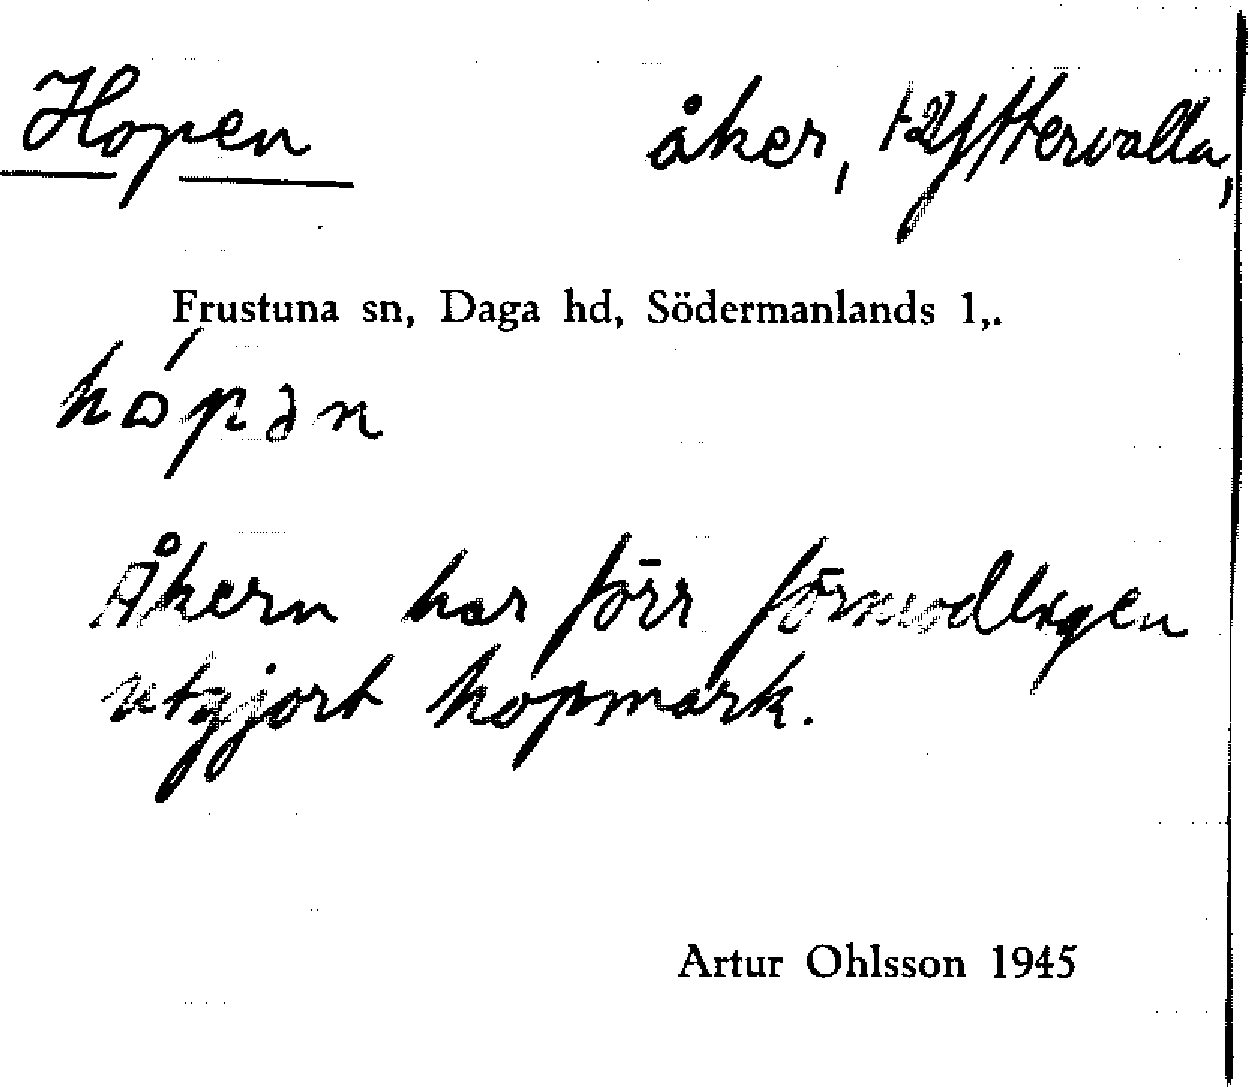 Hopen åker,
Frustuna sn, Daga hd, Södermanlands l,.
hópən
Åkern har förr förmodligen
utgjort hopmark.
Artur Ohlsson 1945